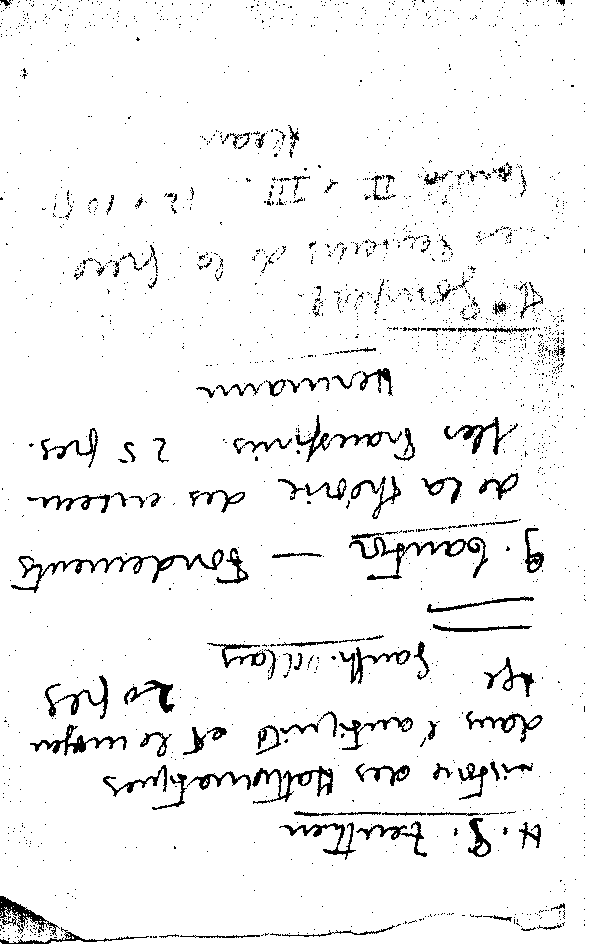 H. G. Zeuthen
Histoire des Mathematiques
dans l'antiquité et le moyen
age 20 frcs
Gauth. Villars
G. Cantor — Fondements
de la théorie des ensem
bles transfinis. 25 frcs.
Hermann
Gomperz.
Les Penseurs de la Grèce
II + III. 12 + 10 fr.
Alcan